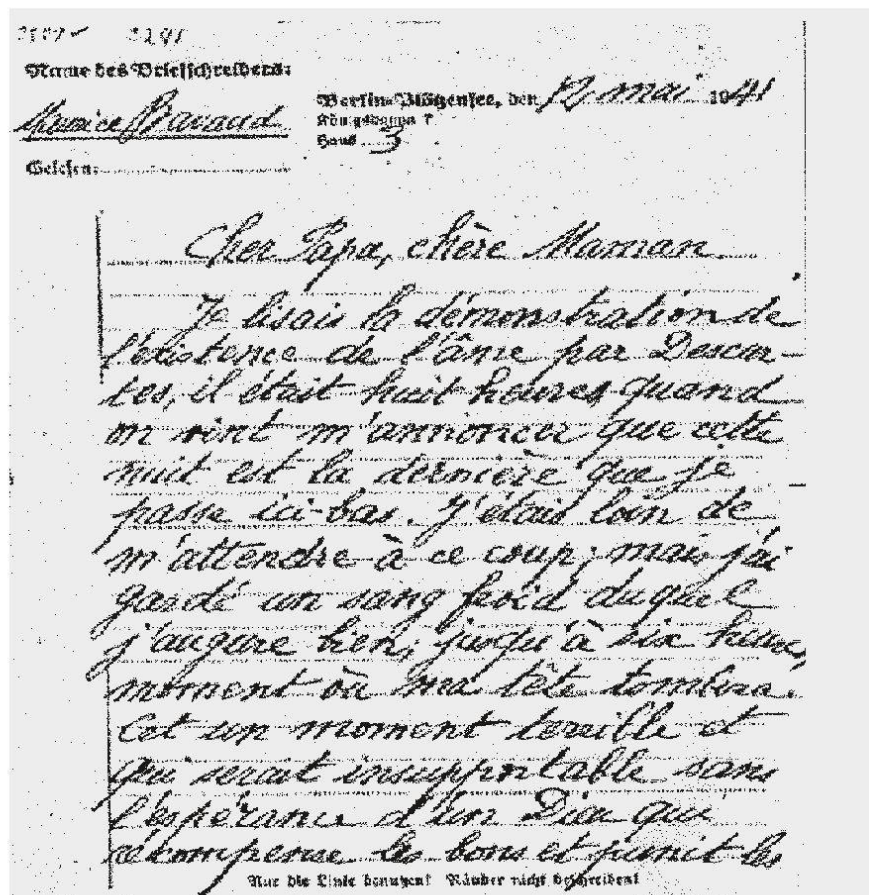 Name des Briefschreibers:
Maurice Bavaud
Berlin-Plötzensee, den 12 mai 1941
Königsdamm 7
Haus 3
Gelesen:
Cher Papa, chère Maman.
Je lisais la démonstration de
l'existence de l'âme par Descar-
tes, il était huit heures, quand
on vint m'annoncer que cette
nuit est la dernière que je
passe ici-bas. J'étais loin de
m'attendre à ce coup; mais j'ai
gardé un sang froid duquel
j'augure bien, jusqu'à six heures,
moment où ma tête tombera.
Cet un moment terrible et
qui serait insupportable sans
l'espérance d'un Dieu qui
récompense les bons et punit les
Nur die Linie benutzen! Ränder nicht beschreiben!